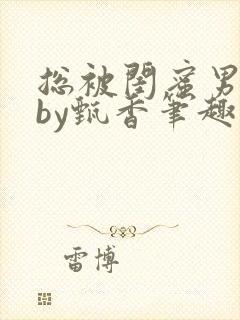 总被闺蜜男
by甄香笔趣
雷博